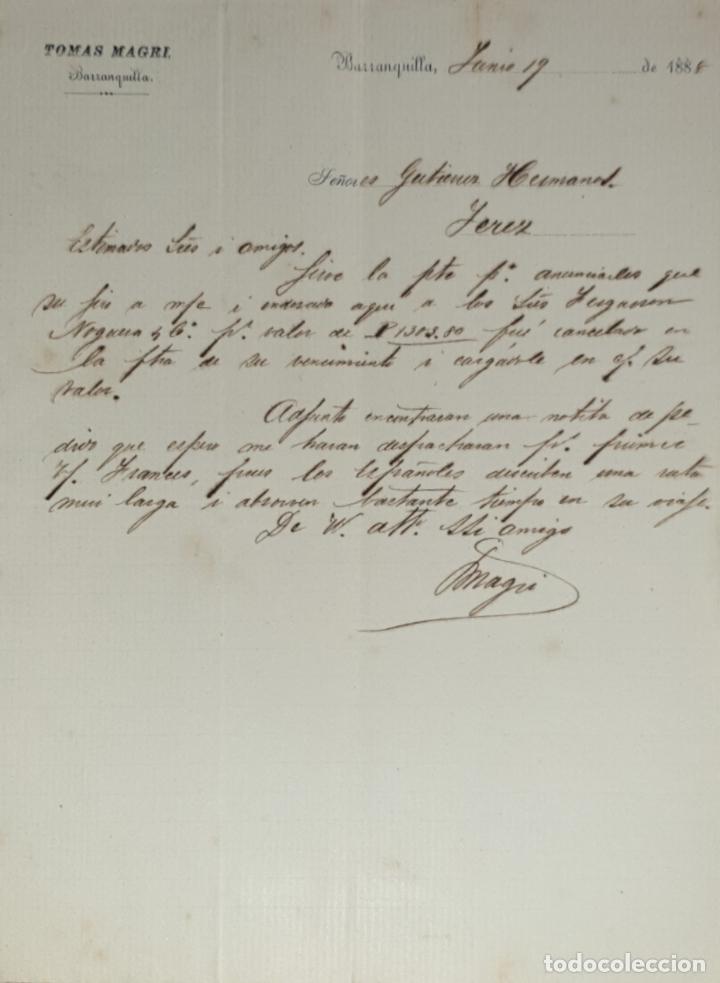 TOMAS MAGRI,
Barranquilla.
Barranquilla, Junio 19 de 1888
Señores Gutierrez Hermanos.
Jerez
Estimados Sres i amigos.
Sirve la pte pª. anunciarles que
su jiro a m/c i endosado aqui a los Sres Ferguson
Noguera & Cª. pr. valor de $ 1303.80 fué cancelado en
la fha de su vencimiento i cargádole en c/. su
valor.
Adjunto encontraran una notita de pe-
didos que espero me haran despacharan pr. primer
V/. Frances, pues los Españoles describen una ruta
mui larga i absorven bastante tiempo en su viaje.
De V. att. SS i amigo
TMagri
todocoleccion